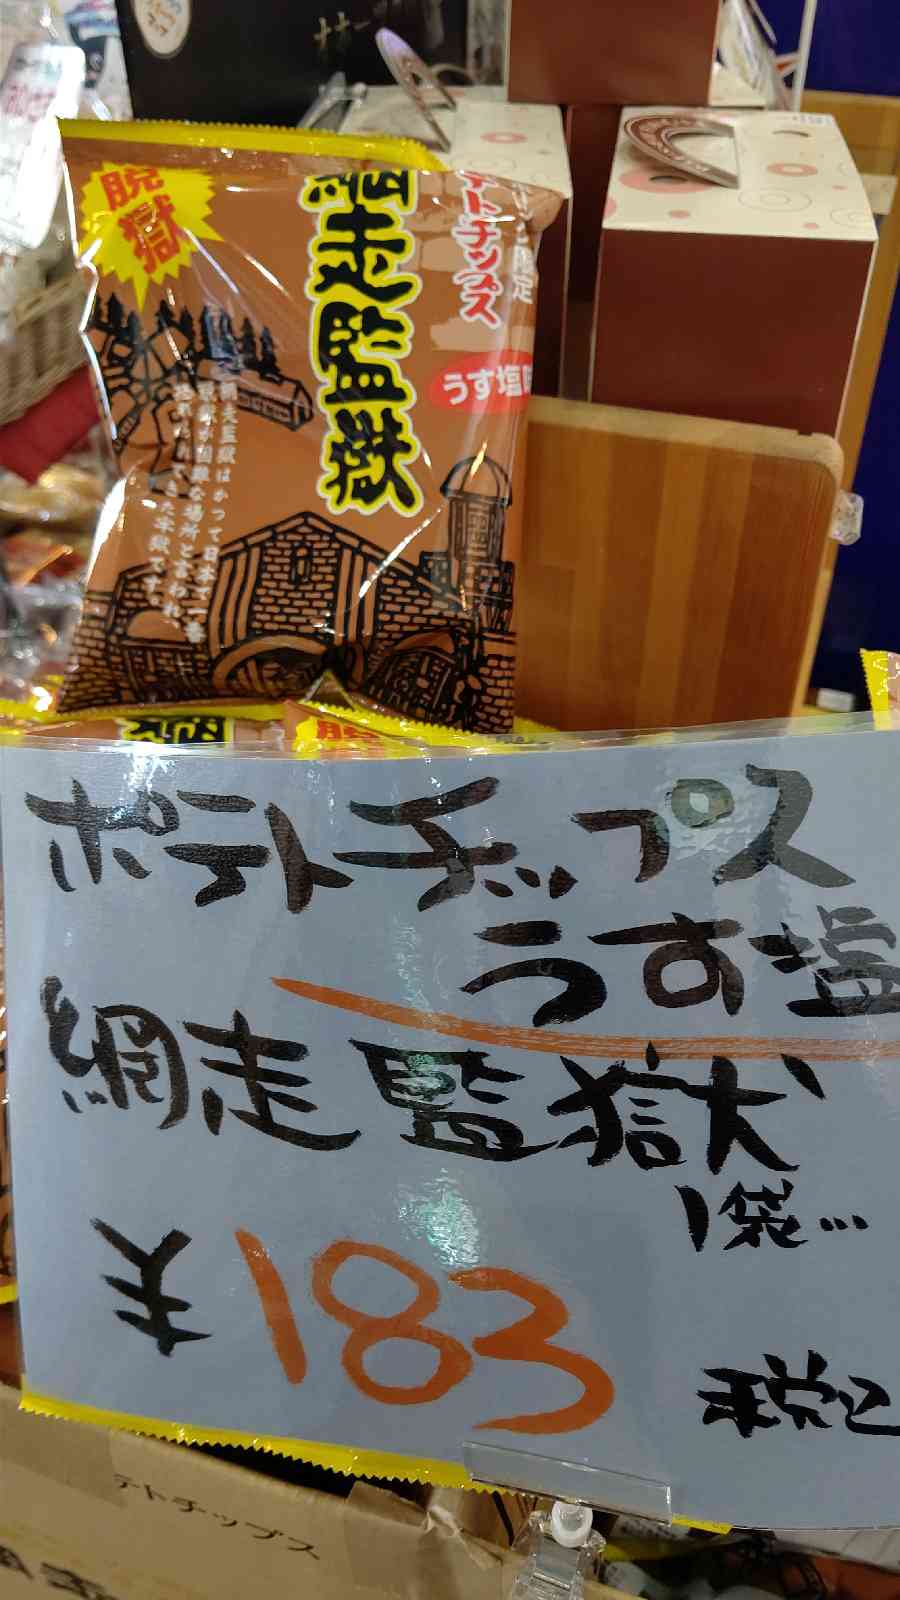 脱獄
網走監獄
テトチップス
うす塩味
網走監獄はかつて日本で一番
脱獄が困難な場所と言われ
恐れられてきた牢獄です。
ポテトチップス
うす塩
網走監獄
1袋…
¥183
税込
テトチップス